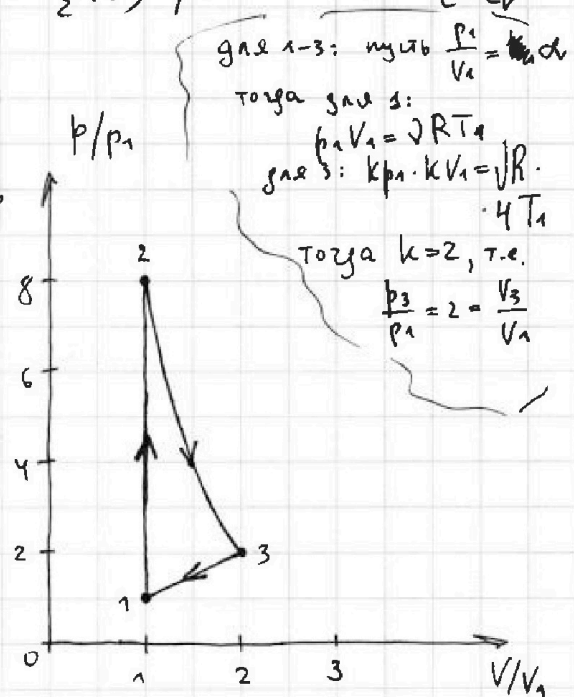 для 1-3: пусть p₁/V₁ = α
тогда для 1:
p₁V₁ = νRT₁
для 3: kp₁ · kV₁ = νR ·
· 4T₁
тогда k = 2, т.е.
p₃/p₁ = 2 = V₃/V₁
p/p₁
2
8
6
4
2
3
1
0
1
2
3
V/V₁